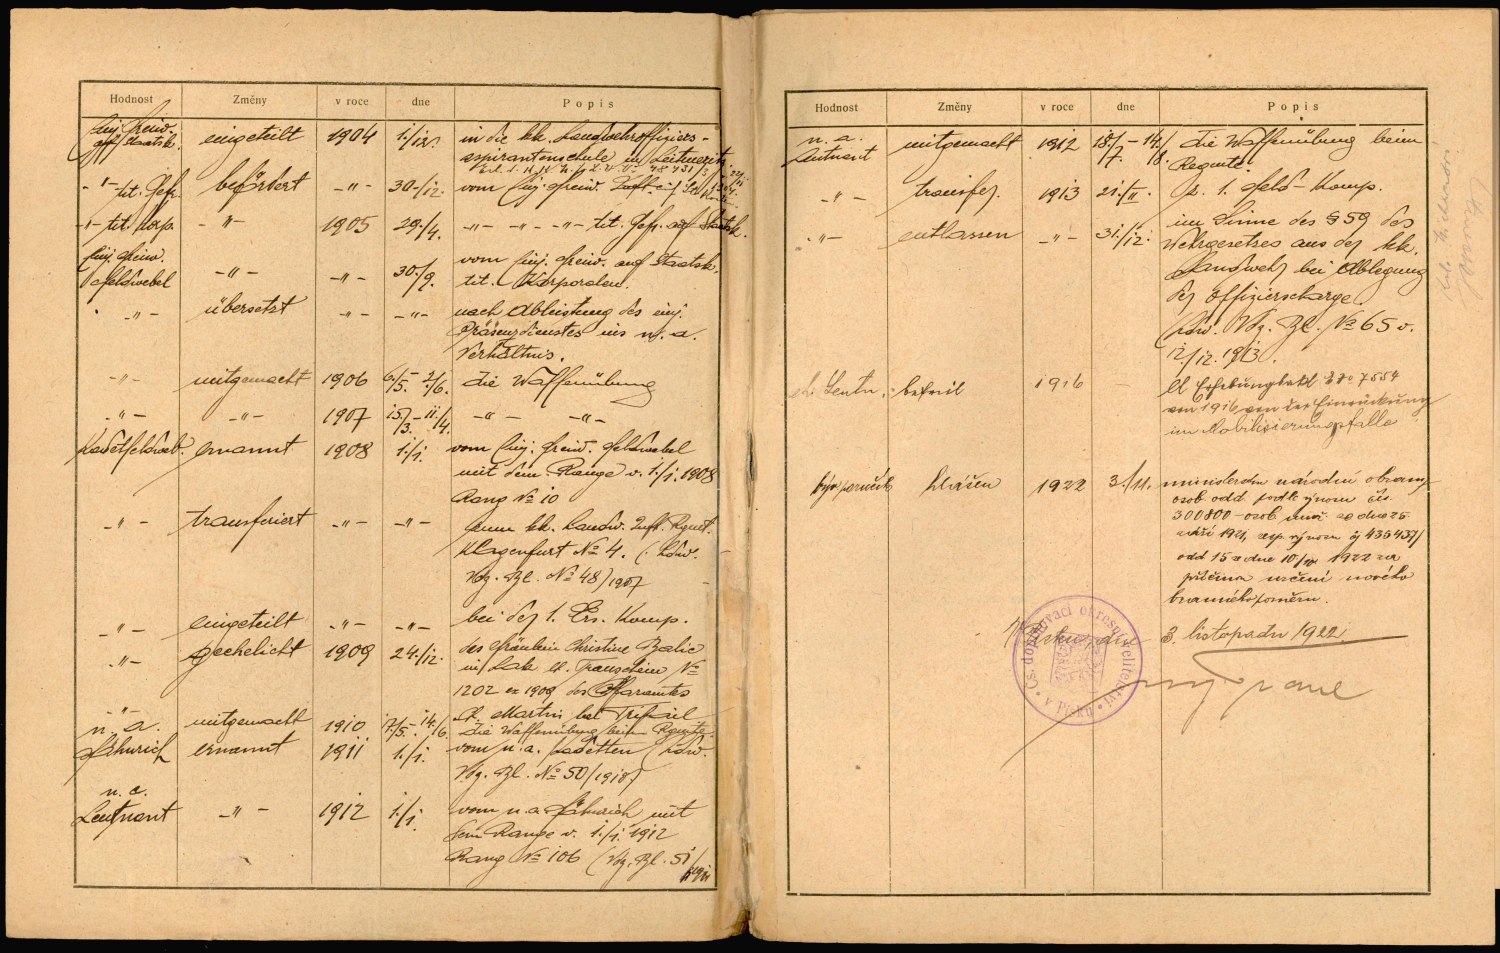 Hodnost Změny v roce dne Popis
Einj. Freiw. eingeteilt 1904 1./12. in die kk. Landwehroffiziers-
auf Staatsk. aspirantenschule in Leitmeritz.
-"- tit. Gefr. befördert -"- 30./12. vom Einj. Freiw. Inft. auf
-"- tit. Korp. -"- 1905 29./4. -"- -"- -"- tit. Gefr. auf Staatsk.
Einj. Freiw. vom Einj. Freiw. auf Staatsk.
Feldwebel -"- -"- 30./9. tit. Korporalen.
-"- übersetzt -"- -"- nach Ableistung des einj.
Präsenzdienstes ins n. a.
Verhältnis.
-"- mitgemacht 1906 6./5. - 2./6. die Waffenübung
-"- -"- 1907 15./3. - 11./4. -"- -"-
Kadetfeldweb. ernannt 1908 1./1. vom Einj. Freiw. Feldwebel
mit dem Range v. 1./1. 1908
Rang № 10
-"- transferiert -"- -"- zum kk. Landw. Inft. Rgmt.
Klagenfurt № 4. (Ldw.
Vdg. Bl. № 48/1907
-"- eingeteilt -"- -"- bei der 1. Ers. Komp.
-"- geehelicht 1909 24./12. des Fräulein Christine Balic
in Lak lt. Trauschein №
1202 ex 1909 des Pfarramtes
-"- St. Martin bei Trifail
n. a. mitgemacht 1910 17./5. - 14./6. die Waffenübung beim Rgmte.
Fähnrich ernannt 1911 1./1. vom n. a. Kadetten (Ldw.
Vdg. Bl. № 50/1910)
n. a.
Leutnant -"- 1912 1./1. vom n. a. Fähnrich mit
dem Range v. 1./1. 1912
Rang № 106 (Vdg. Bl. 51/1911
Hodnost Změny v roce dne Popis
n. a.
Leutnant mitgemacht 1912 18./7. - 14./8. die Waffenübung beim
Regmte.
-"- transfer. 1913 21./II. z. 1. Feld-Komp.
-"- entlassen -"- 31./12. im Sinne des § 59 des
Wehrgesetzes aus der kk.
Landwehr bei Ablegung
der Offizierscharge.
Ldw. Vdg. Bl. № 65 v.
12/12. 1913.
Leutn. befreit 1916 - 7554
von 1916 von der Einrückung
im Mobilisierungsfalle
býv. poručík hlášen 1922 3./11. ministerstvu národní obrany
osob. odd. podle výnosu čís.
300800-osob. ze dne 25
září 1921, resp. výnosu čj 435437/
odd 15 ze dne 10/10 1922 za
příčinou určení nového
branného poměru.
V Písku, dne 3. listopadu 1922.
Čs. doplňovací okresní velitelství v Písku